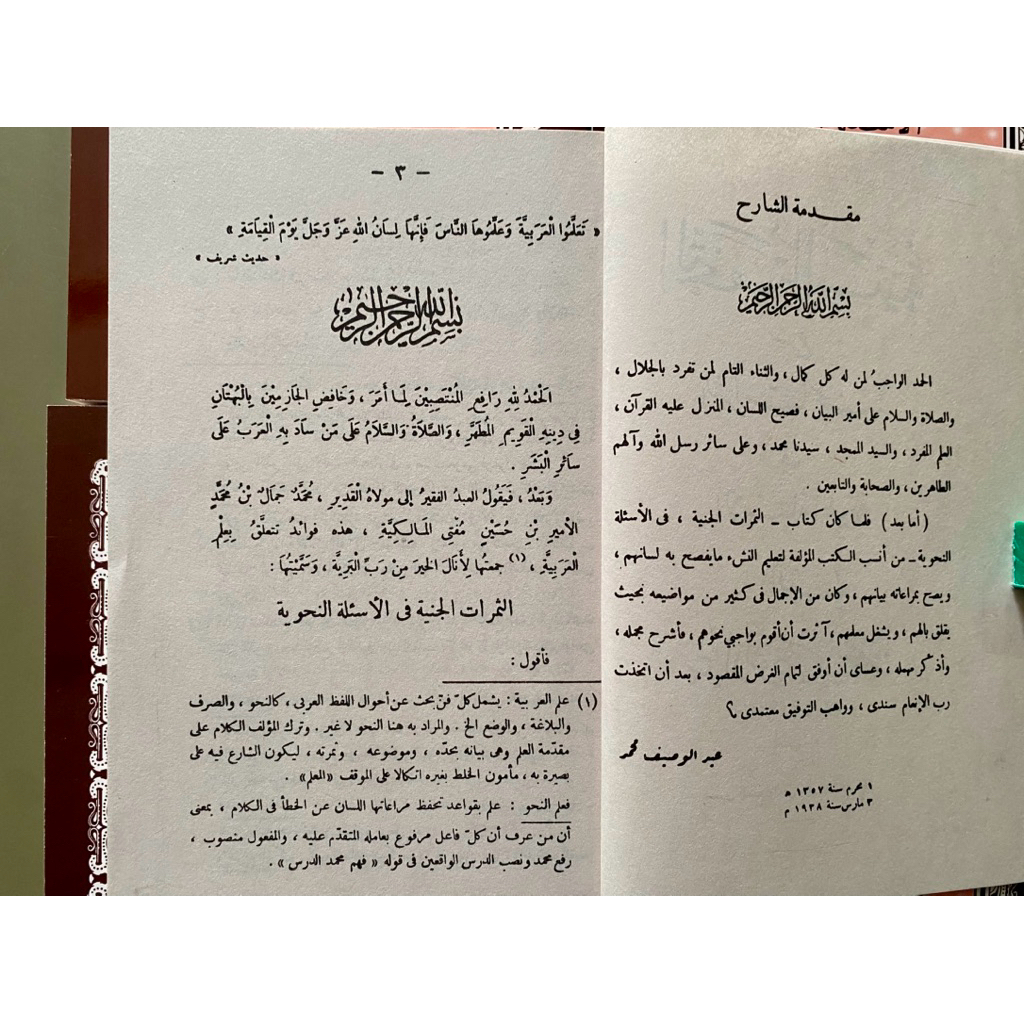 مقدمة الشارح
بسم الله الرحمن الرحيم
الحمد الواجبُ لمن له كل كمال ، والثناء التام لمن تفرد بالجلال ،
والصلاة والسلام على أمير البيان ، فصيح اللسان ، المنزل عليه القرآن ،
العلم المفرد ، والسيد المجد ، سيدنا محمد ، وعلى سائر رسل الله وآلهم
الطاهرين ، والصحابة والتابعين .
( أما بعد ) فلما كان كتاب – الثمرات الجنية ، فى الأسئلة
النحوية – من أنسب الكتب المؤلفة لتعليم النشء مايفصح به لسانهم ،
ويصح بمراعاته بيانهم ، وكان من الإجمال فى كثير من مواضيعه بحيث
يقلق بالهم ، ويشغل معلمهم ، آثرت أن أقوم بواجبي نحوهم ، فأشرح مجمله ،
وأذكر مهمله ، وعساى أن أوفق لتمام الغرض المقصود ، بعد أن اتخذت
رب الإنعام سندى ، وواهب التوفيق معتمدى ؟
عبد الوصيف محمد
١ محرم سنة ١٣٥٧ ه
٣ مارس سنة ١٩٣٨ م
– ٣ –
« تَعَلَّمُوا الْعَرَبِيَّةَ وَعَلِّمُوهَا النَّاسَ فَإِنَّهَا لِسَانُ اللهِ عَزَّ وَجَلَّ يَوْمَ الْقِيَامَةِ »
« حديث شريف »
بسم الله الرحمن الرحيم
الْحَمْدُ لِلهِ رَافِعِ الْمُنْتَصِبِيْنَ لِمَا أَمَرَ ، وَخَافِضِ الْجَازِمِيْنَ بِالْبُهْتَانِ
فِي دِينِهِ الْقَوِيمِ الْمُطَهَّرِ ، وَالصَّلاَةُ وَالسَّلاَمُ عَلَى مَنْ سَادَ بِهِ الْعَرَبُ عَلَى
سَائرِ الْبَشَرِ .
وَبَعْدُ ، فَيَقُولُ العبدُ الفقيرُ إلى مولاهُ الْقَدِيرِ ، مُحَمَّدُ جَمَالُ بْنُ مُحَمَّدٍ
الأميرِ بْنِ حُسَيْنٍ مُفْتِى الْمَالِكِيَّةِ ، هذه فوائدُ تتعلَّقُ بِعِلْمِ
الْعَرَبِيَّةِ ، (١) جمعتُها لِأَنَالَ الخيرَ مِنْ رَبِّ الْبَرِيَّةِ ، وَسَمَّيْتُهَا :
الثمرات الجنية فى الأسئلة النحوية
فأقول :
(١) علم العربية : يشمل كلّ فنّ يبحث عن أحوال اللفظ العربى ، كالنحو ، والصرف
والبلاغة ، والوضع الخ . والمراد به هنا النحو لا غير . وترك المؤلف الكلام على
مقدّمة العلم وهى بيانه بحدّه ، وموضوعه ، وثمرته ، ليكون الشارع فيه على
بصيرة به ، مأمون الخلط بغيره اتكالا على الموقف «المعلم» .
فعلم النحو : علم بقواعد تحفظ مراعاتها اللسان عن الخطأ فى الكلام ، بمعنى
أن من عرف أن كلّ فاعل مرفوع بعامله المتقدّم عليه ، والمفعول منصوب ،
رفع محمد ونصب الدرس الواقعين فى قوله « فهم محمد الدرس» .